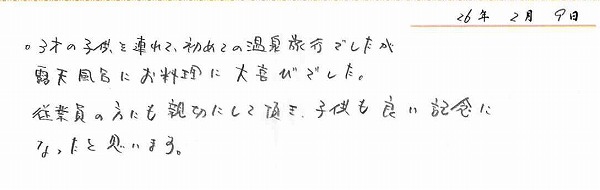 26年 2月 9日
。3才の子供を連れて、初めての温泉旅行でしたが
露天風呂にお料理に大喜びでした。
従業員の方にも親切にして頂き、子供も良い記念に
なったと思います。